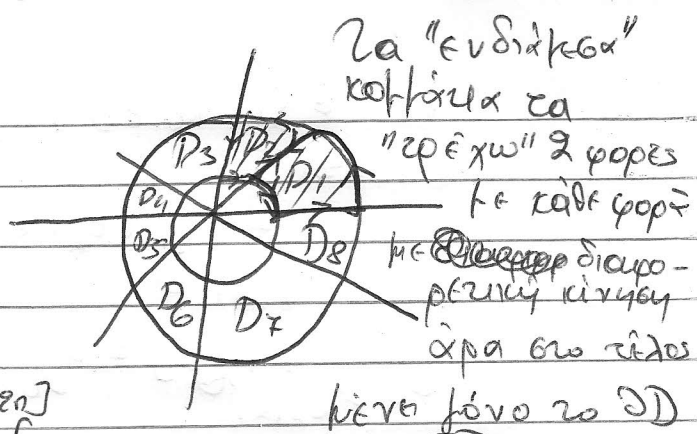 Τα "ενδιάμεσα"
κομμάτια τα
"τρέχω" 2 φορές
με κάθε φορά
με διαφο-
ρετική κίνηση
άρα στο τέλος
μένει μόνο το ∂D
D3 D2 D1
D4
D5 D8
D6 D7